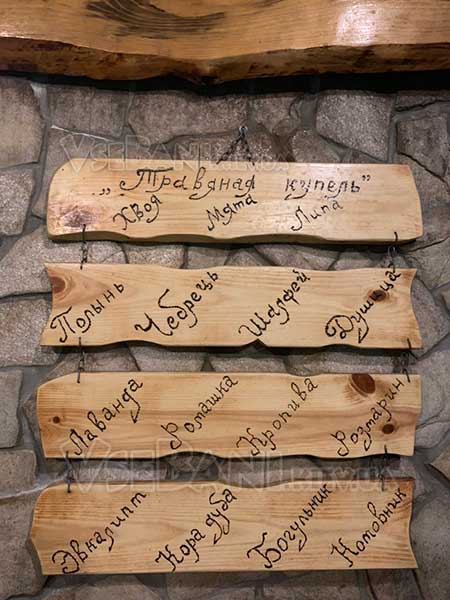 „Травяная купель"
Хвоя Мята Липа
Полынь Чебрець Шалфей Душица
Лаванда Ромашка Кропива Розмарин
Эвкалипт Кора дуба Богульник Котовник